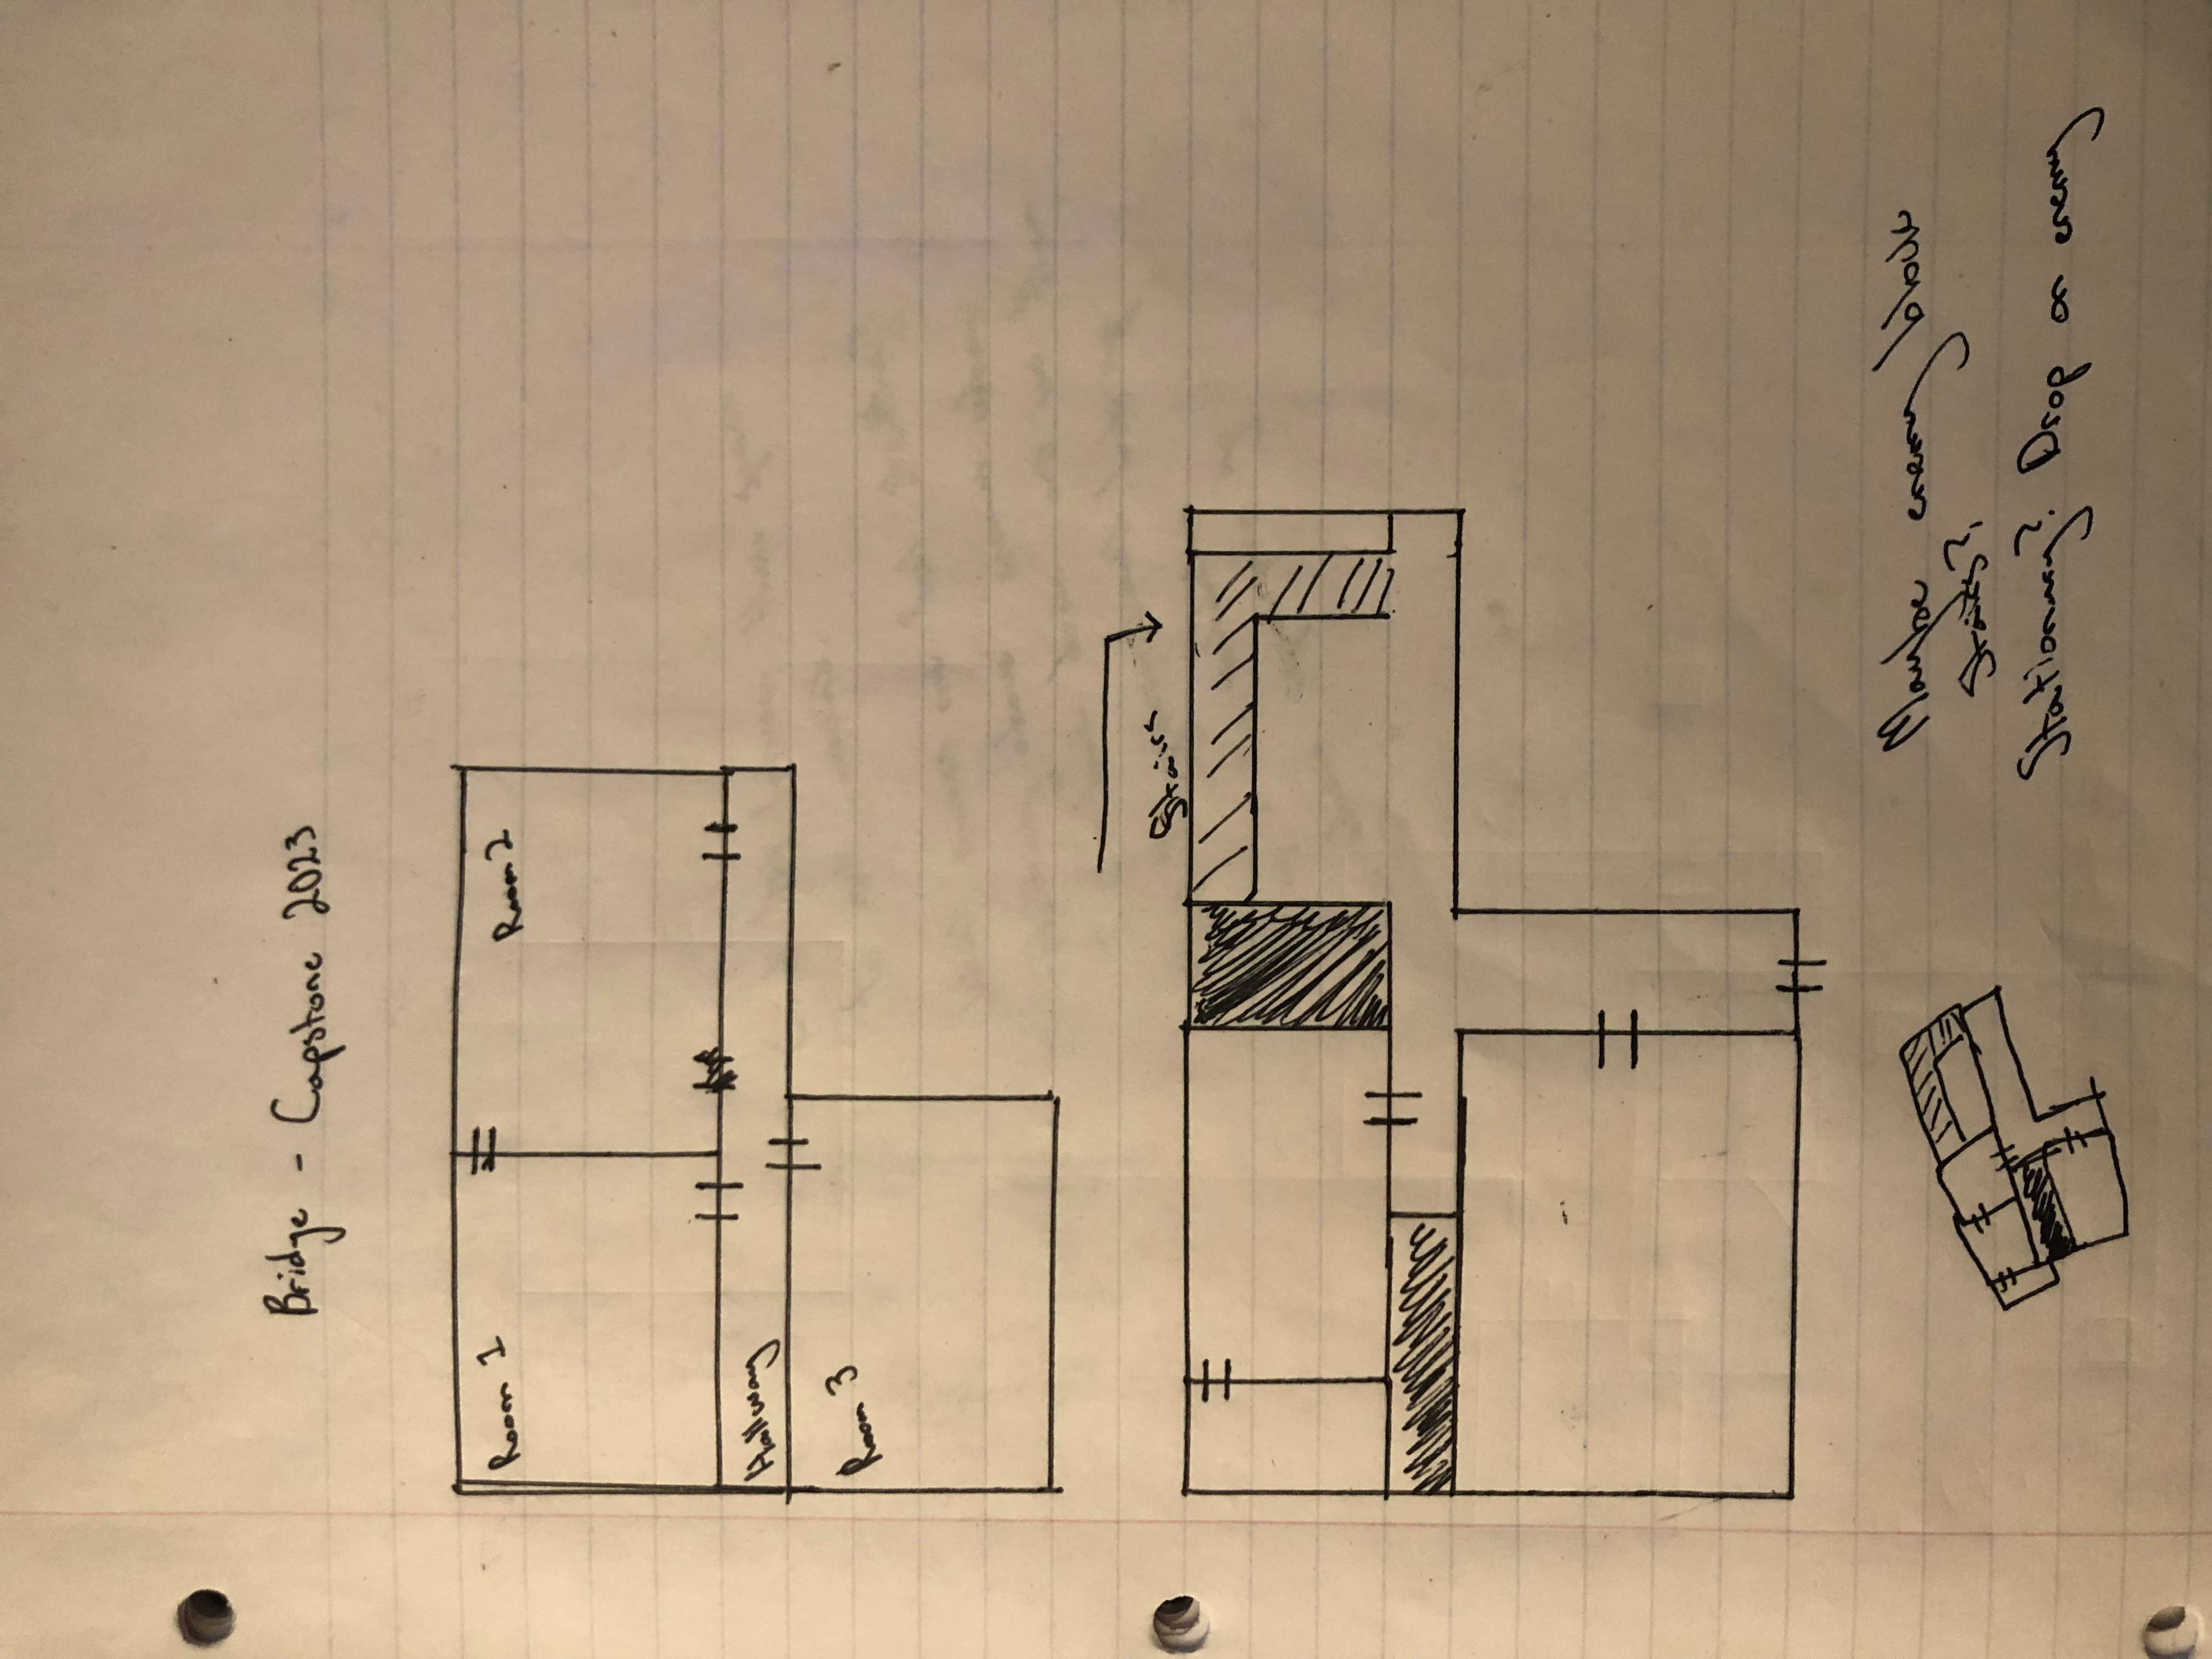 Bridge - Capstone 2023
Room 1
Room 2
Hallway
Room 3
Stairs
Maybe enemy block
stairs?
Stationary? Drop on enemy